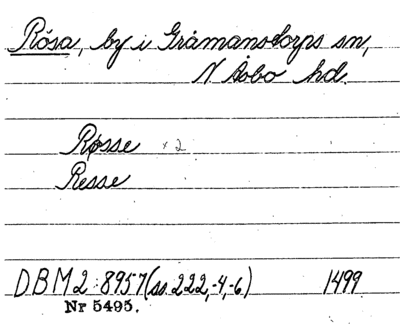 Rösa, by i Gråmanstorps sn,
N Åsbo hd.
Røsse x 2
Resse
DBM 2:8957 (ss 222,-4,-6) 1499
Nr 5495.